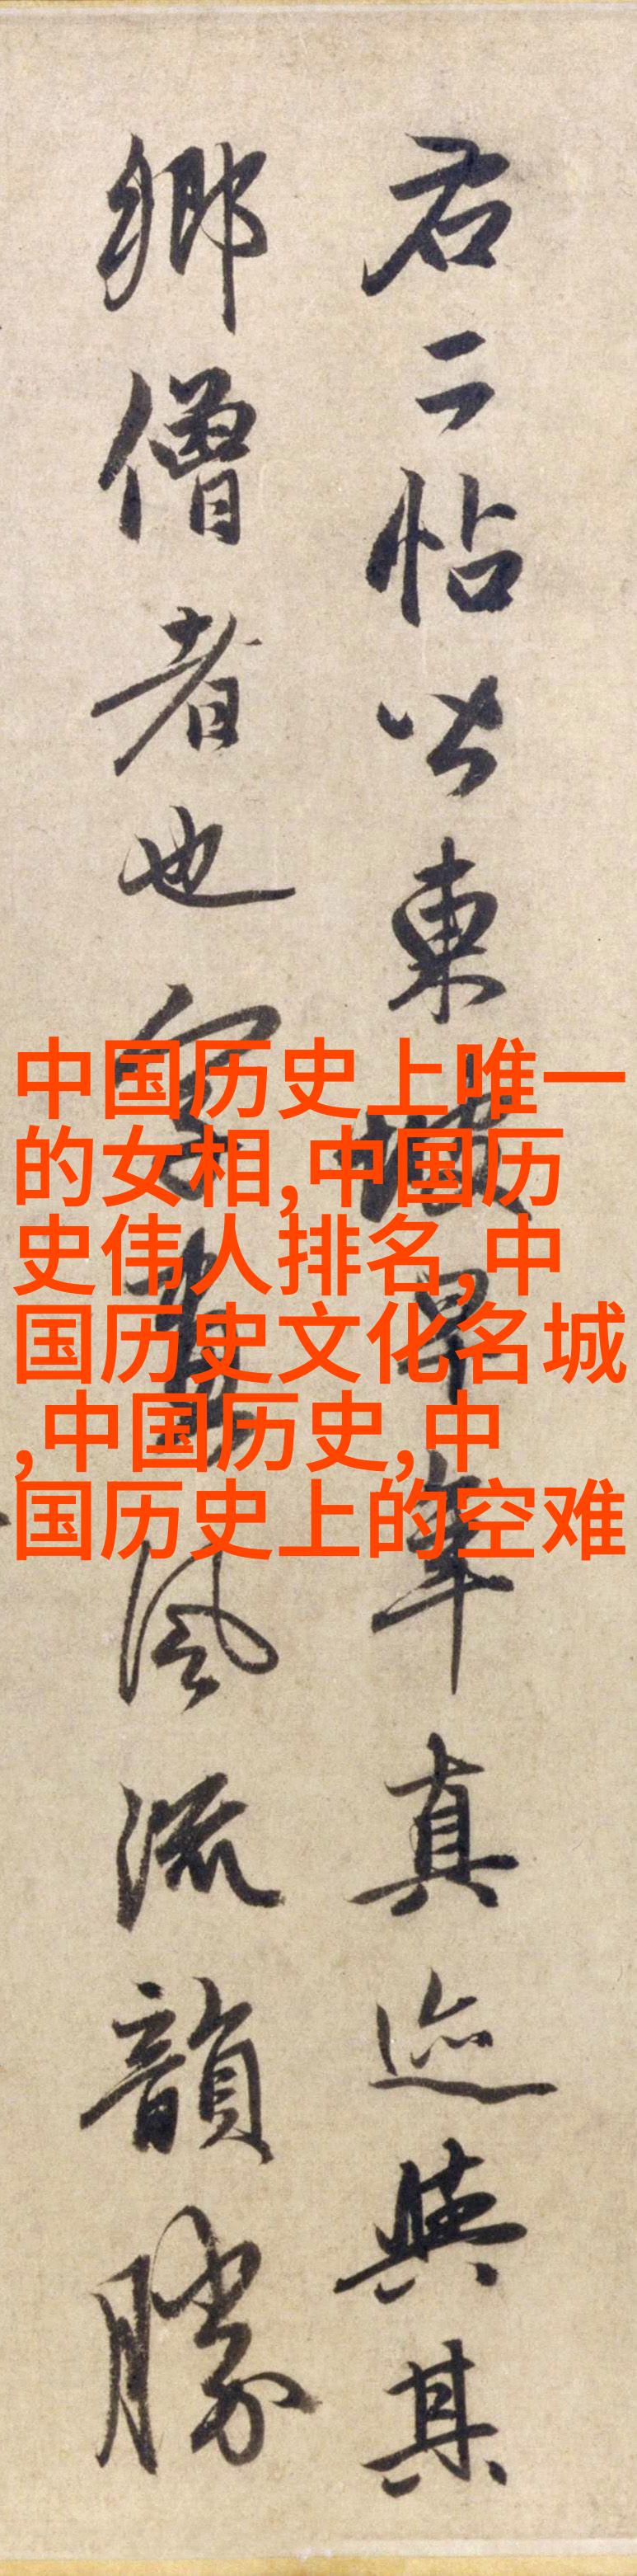 右二帖皆東坡早年真迹與其
鄉僧者也字畫風流韻勝
中国历史上唯一
的女相,中国历
史伟人排名,中
国历史文化名城
,中国历史,中
国历史上的空难